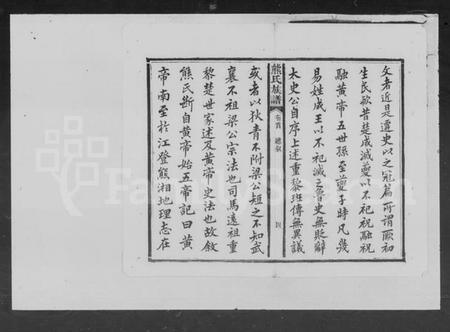 文者近是遷史以之冠篇所謂厥初
生民歟昔楚成滅夔以不祀祝融祝
融黃帝五世孫至夔子時凡幾
易姓成王以不祀滅之魯史無貶辭
太史公自序上述重黎班傳無異議
熊氏族譜 卷首 總敘 四
或者以狄青不附梁公短之不知武
襄不祖梁公宗法也司馬遠祖重
黎楚世家述及黃帝史法也故敘
熊氏斷自黃帝始五帝記曰黃
帝南至於江登熊湘地理志在